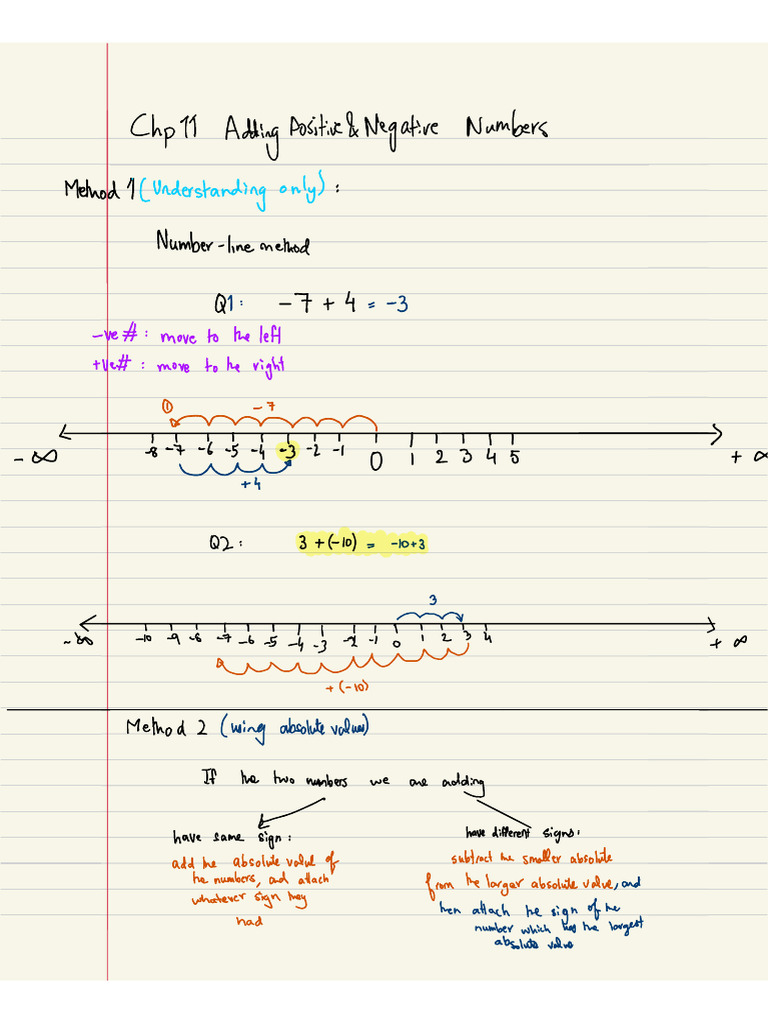 Chp 11 Adding Positive & Negative Numbers
Method 1 (Understanding only) :
Number-line method
Q1: -7 + 4 = -3
-ve# : move to the left
+ve# : move to the right
① -7
-8 -7 -6 -5 -4 -3 -2 -1 0 1 2 3 4 5
-∞ +∞
+4
Q2: 3 + (-10) = -10+3
3
-10 -9 -8 -7 -6 -5 -4 -3 -2 -1 0 1 2 3 4
-∞ +∞
+ (-10)
Method 2 (using absolute values)
If the two numbers we are adding
have same sign:
add the absolute value of
the numbers, and attach
whatever sign they
had
have different signs:
subtract the smaller absolute
from the larger absolute value, and
then attach the sign of the
number which has the largest
absolute value